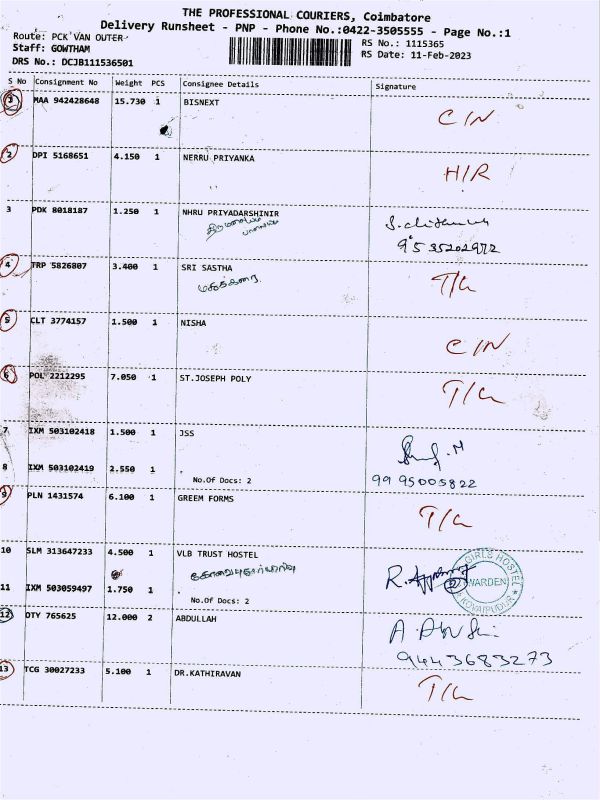 THE PROFESSIONAL COURIERS, Coimbatore
Delivery Runsheet - PNP - Phone No.:0422-3505555 - Page No.:1
Route: PCK VAN OUTER
Staff: GOWTHAM
DRS No.: DCJB111536501
RS No.: 1115365
RS Date: 11-Feb-2023
S No Consignment No Weight PCS Consignee Details Signature
1 MAA 942428648 15.730 1 BISNEXT C/N
2 DPI 5168651 4.150 1 NERRU PRIYANKA H/R
3 PDK 8018187 1.250 1 NHRU PRIYADARSHINIR
9535202972
4 TRP 5826807 3.400 1 SRI SASTHA T/L
5 CLT 3774157 1.500 1 NISHA C/N
6 POL 2212295 7.050 1 ST.JOSEPH POLY T/L
7 IXM 503102418 1.500 1 JSS
8 IXM 503102419 2.550 1 .
No.Of Docs: 2
9995005822
9 PLN 1431574 6.100 1 GREEM FORMS T/L
10 SLM 313647233 4.500 1 VLB TRUST HOSTEL
GIRLS HOSTEL
WARDEN
KOVAIPUDUR
11 IXM 503059497 1.750 1 .
No.Of Docs: 2
12 OTY 765625 12.000 2 ABDULLAH
9443683273
13 TCG 30027233 5.100 1 DR.KATHIRAVAN T/L